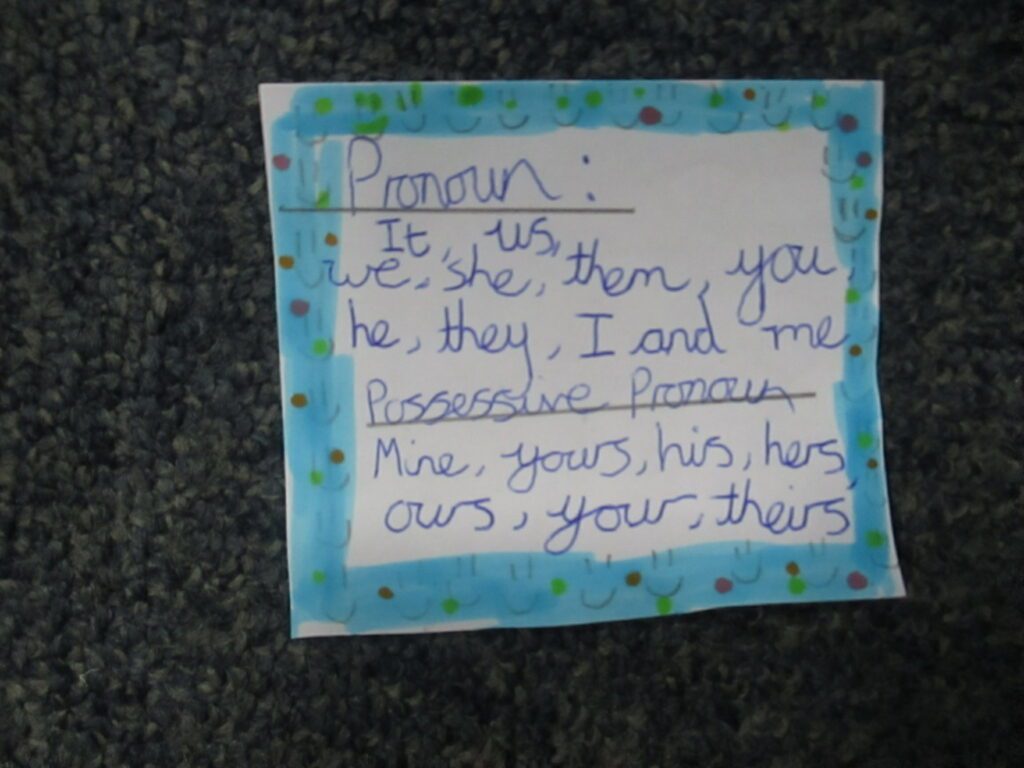 Pronoun :
It, us,
we, she, them, you,
he, they, I and me
Possessive Pronoun
Mine, yours, his, hers,
ours, your, theirs